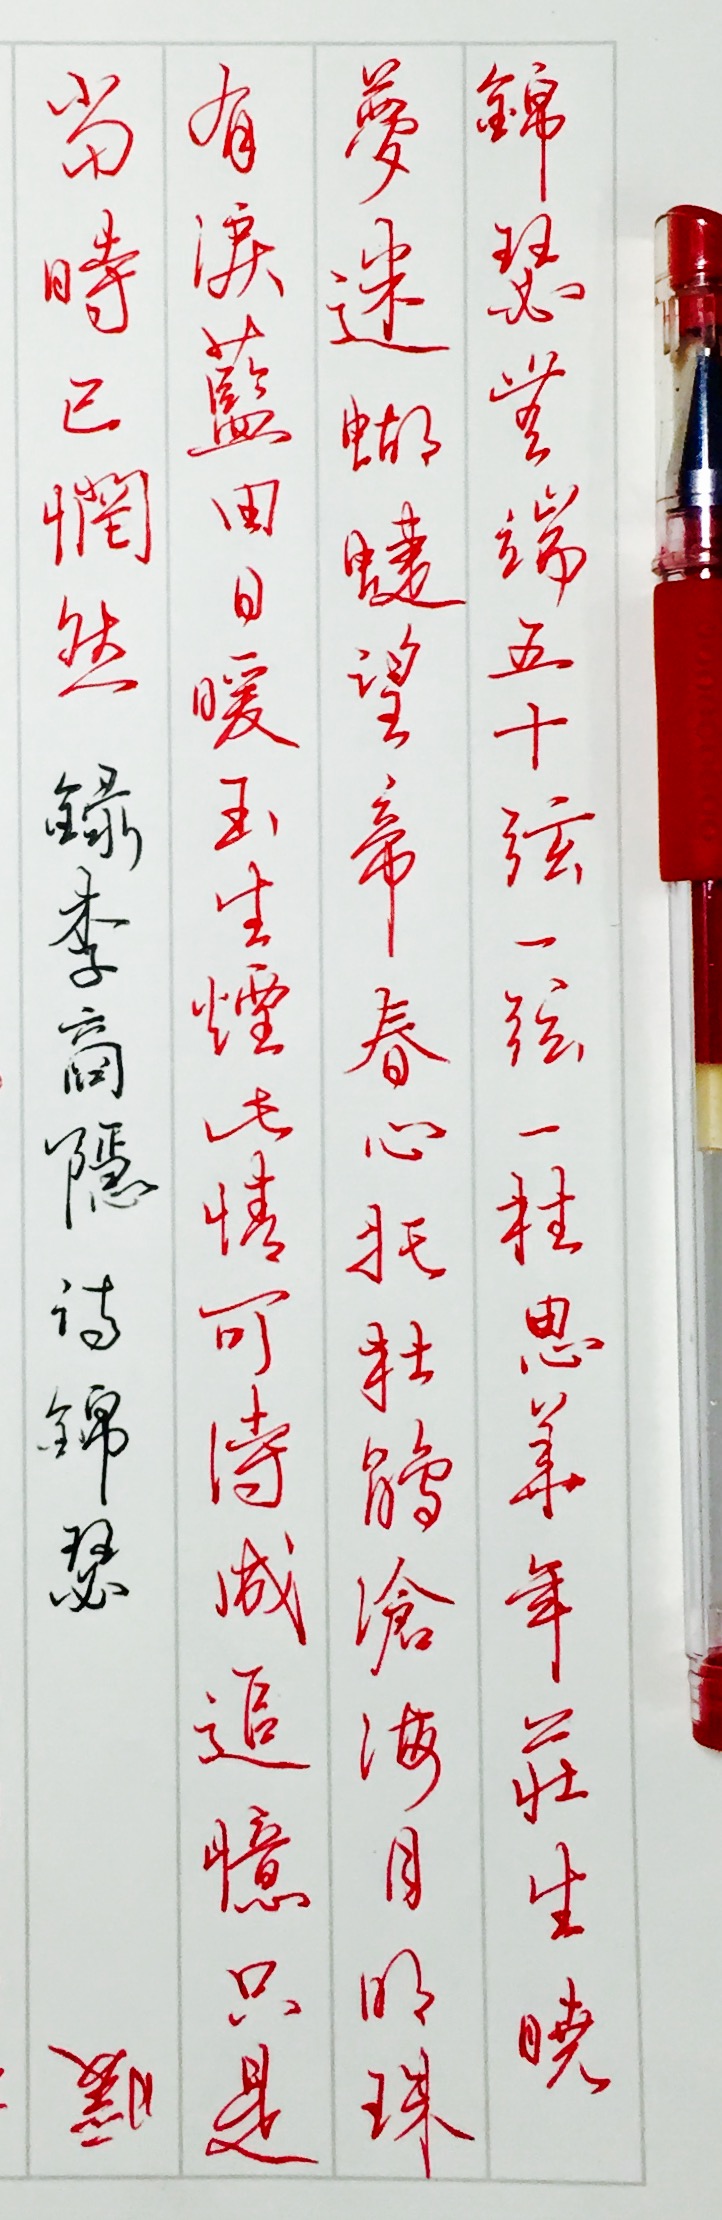 錦瑟無端五十弦一弦一柱思華年莊生曉
夢迷蝴蝶望帝春心托杜鵑滄海月明珠
有淚藍田日暖玉生煙此情可待成追憶只是
當時已惘然 錄李商隱詩錦瑟